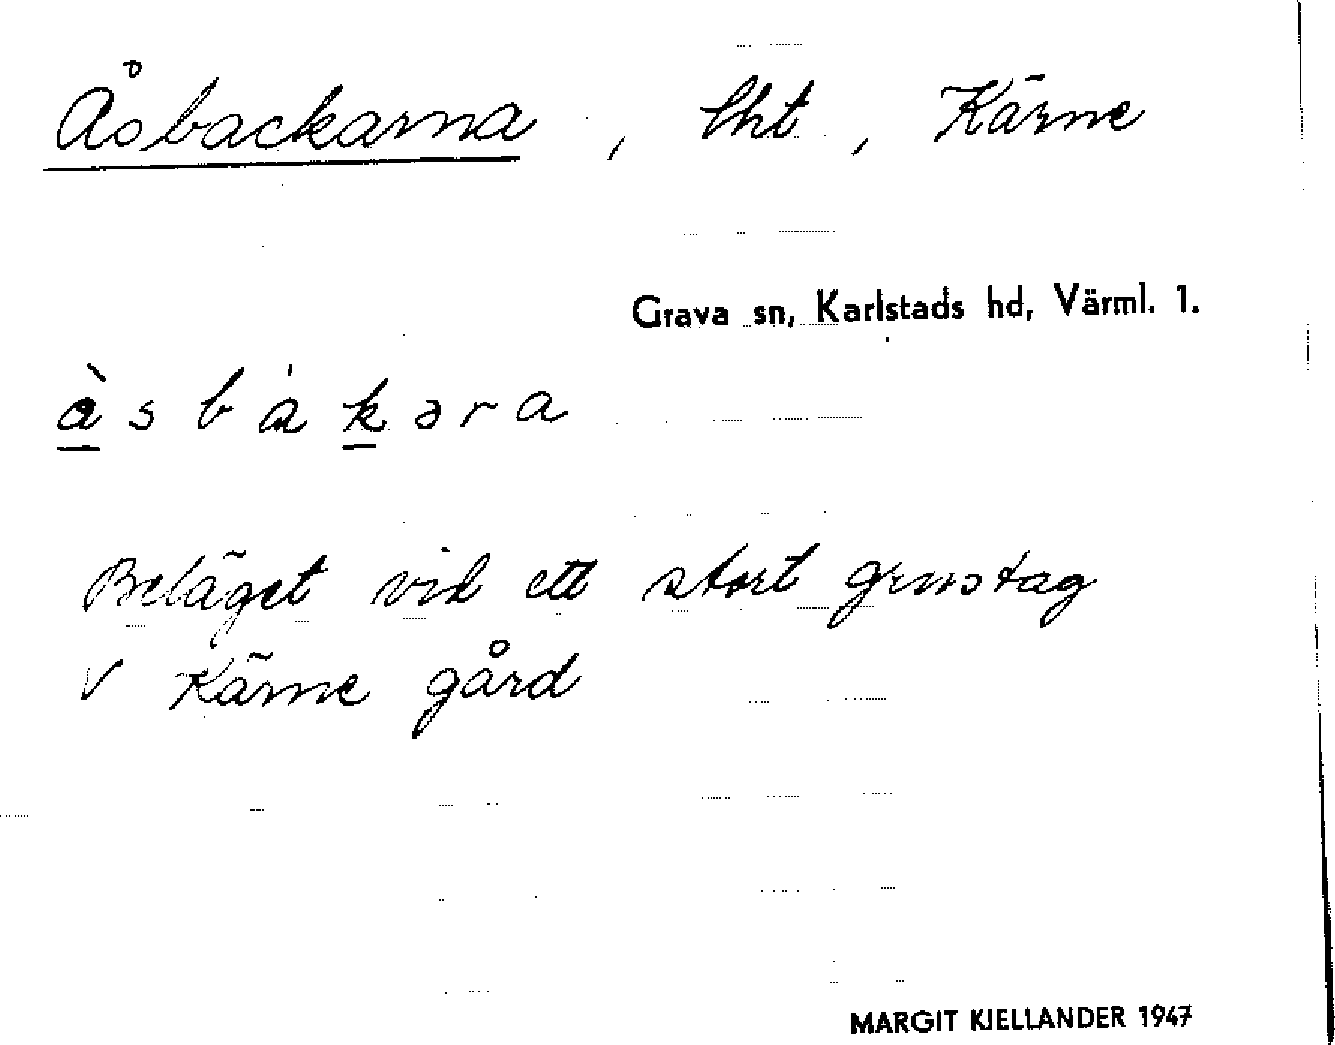 Åsbackarna, lht, Kärne
Grava sn, Karlstads hd, Värml. 1.
à s b á k ə r a
Beläget vid ett stort grustag
V Kärne gård
MARGIT KJELLANDER 1947